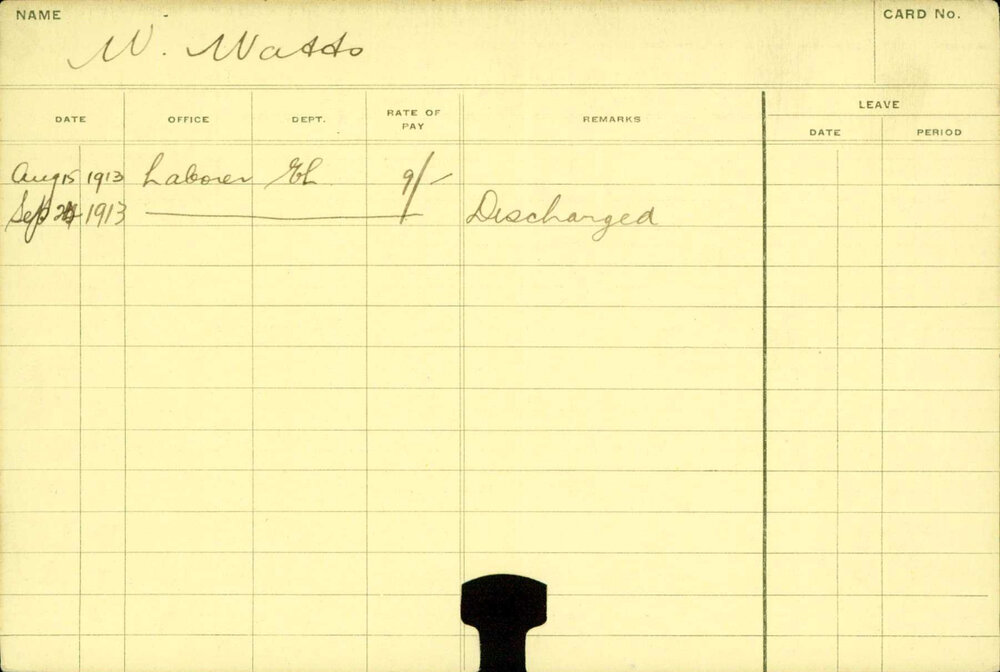 NAME
CARD No.
W. Watts
DATE OFFICE DEPT. RATE OF PAY REMARKS LEAVE
DATE PERIOD
Aug 15 1913 Laborer EL 9/-
Sep 1913 Discharged